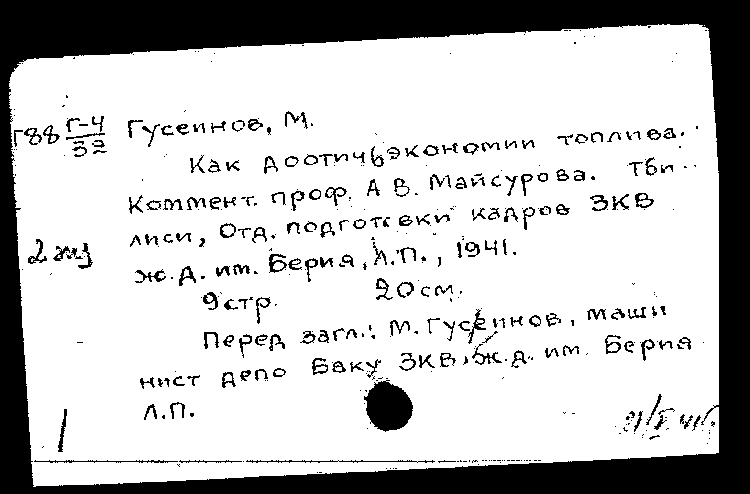 Г88 Г-4 Гусеинов, М.
32
Как достичь экономии топлива.
Коммент. проф. А В. Майсурова. Тби
лиси, Отд. подготовки кадров ЗКВ
2 экз
ж.д. им. Берия, Л.П., 1941.
9стр. 20см.
Перед загл.: М. Гусеинов, маши
нист депо Баку ЗКВ. ж.д. им. Берия
Л.П.
1